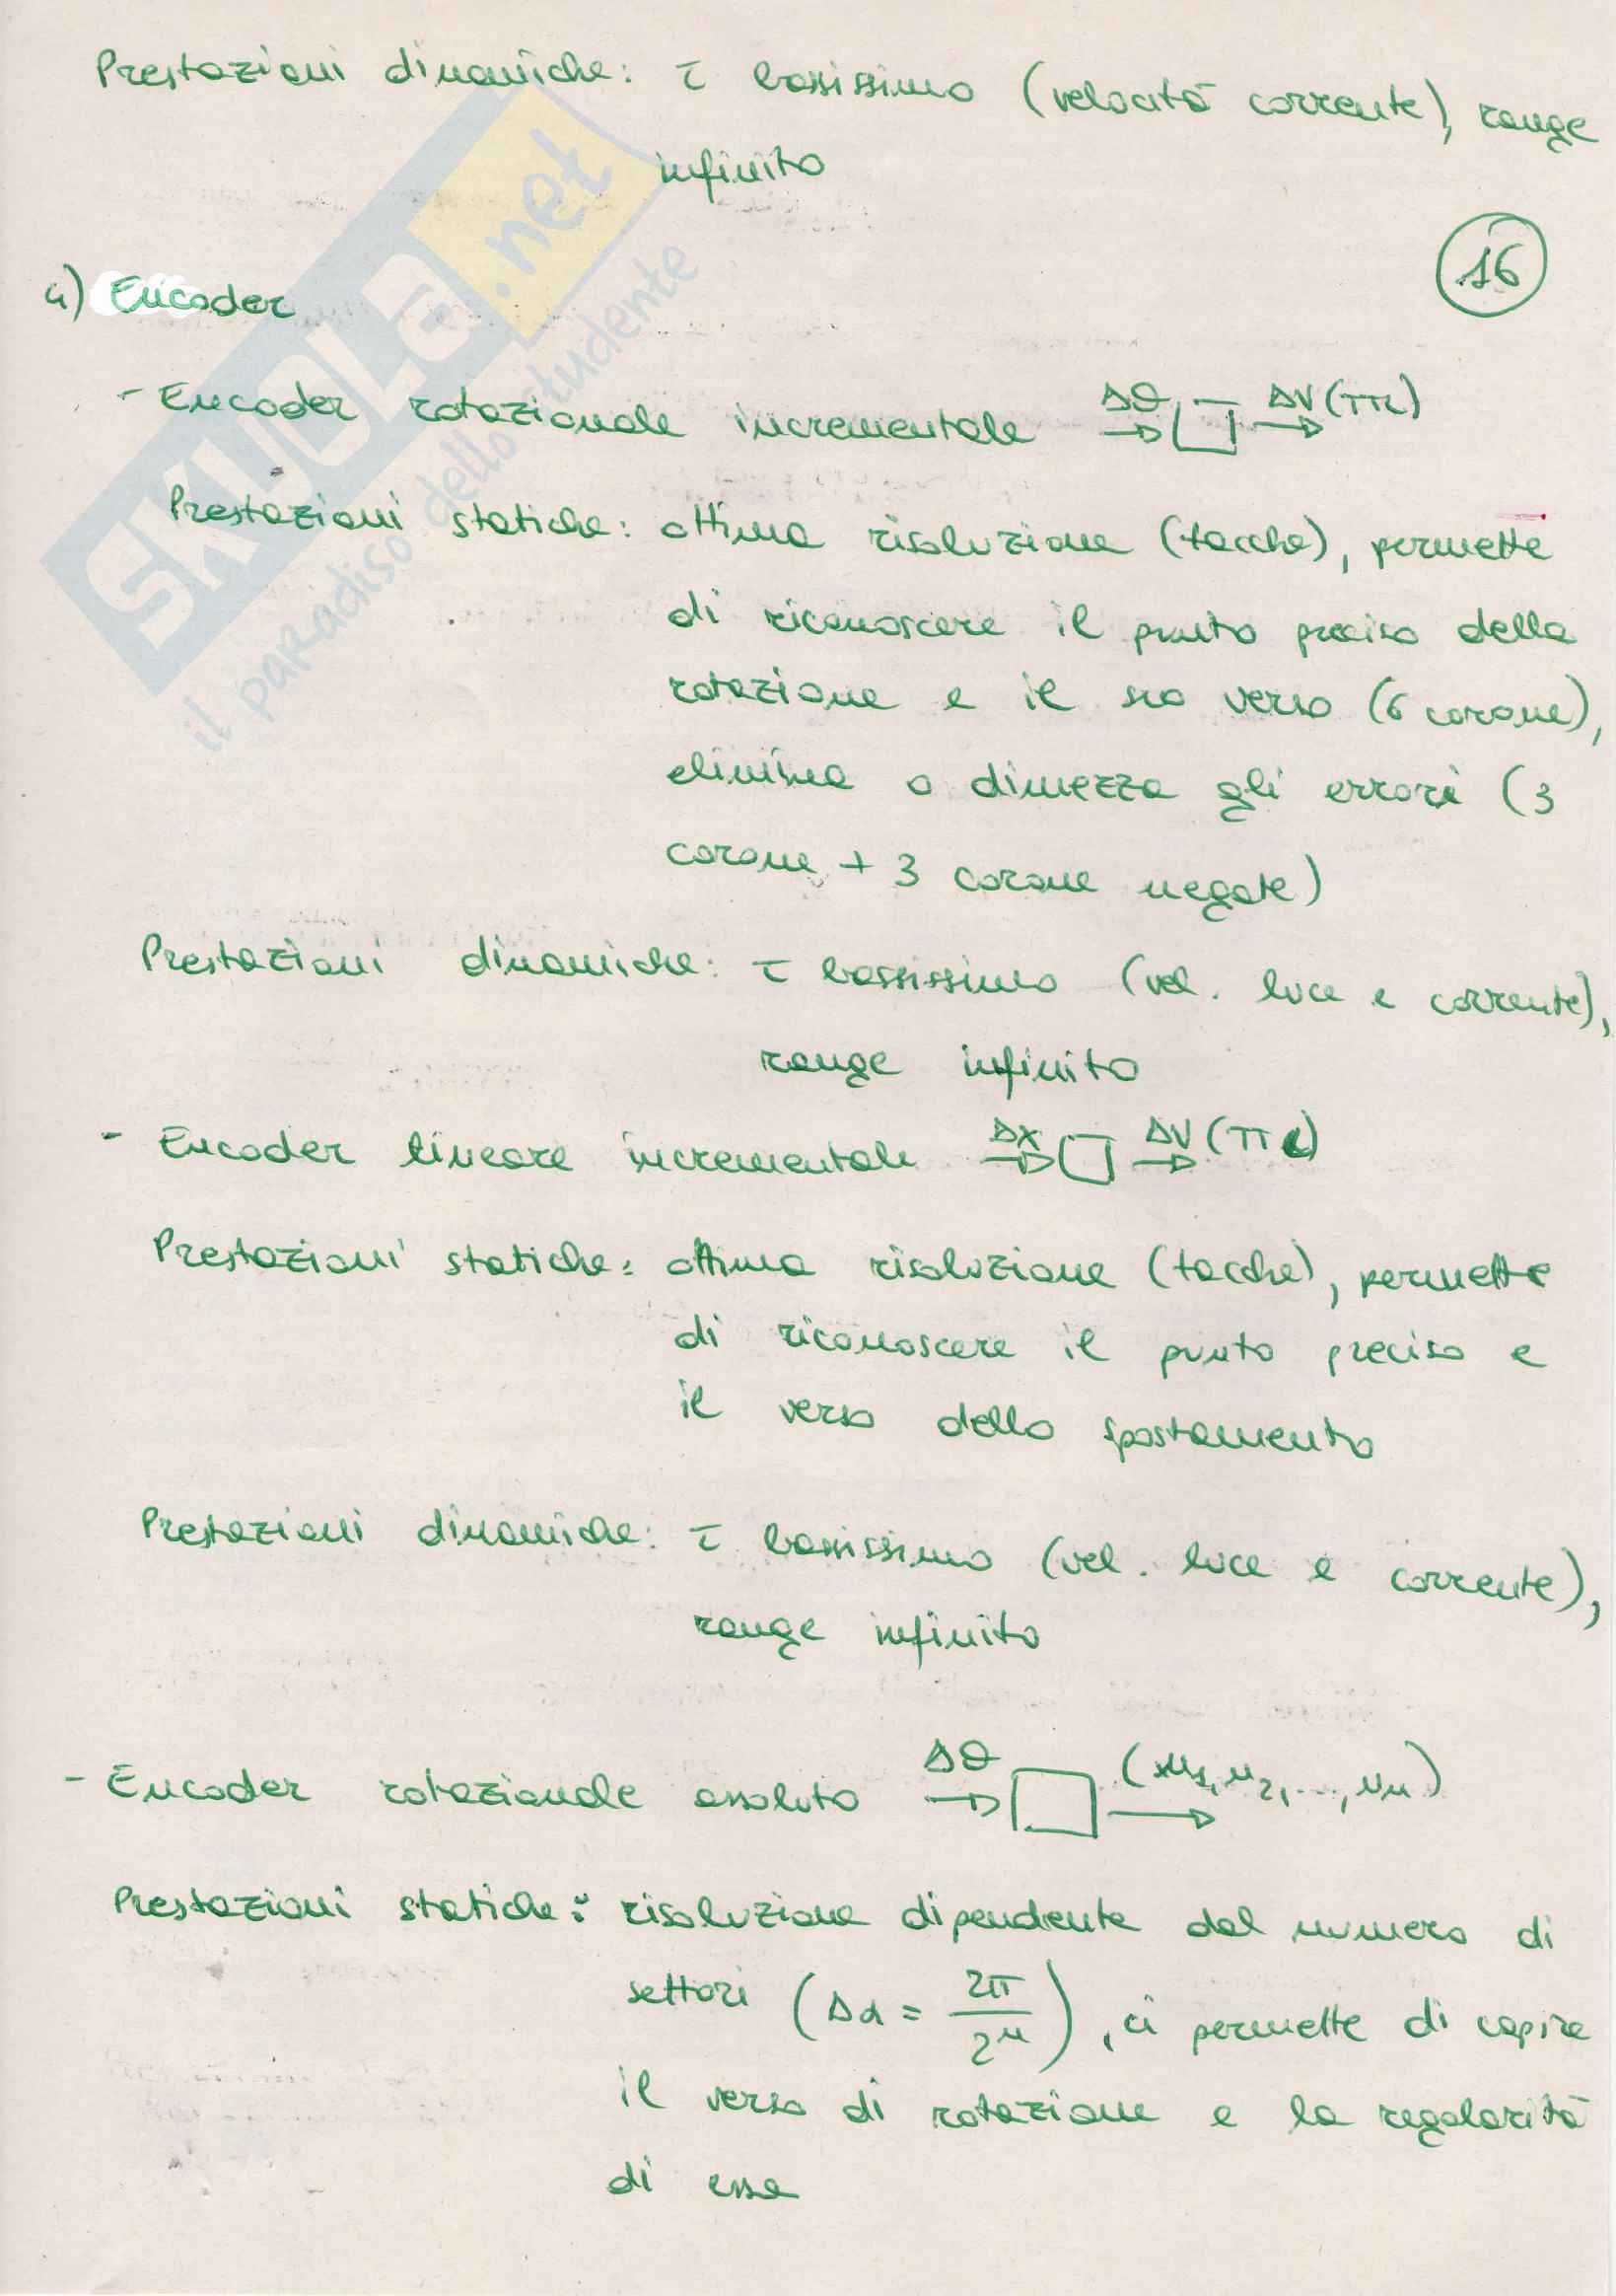 Prestazioni dinamiche: τ bassissimo (velocità corrente), range
infinito
16
4) Encoder
- Encoder rotazionale incrementale Δθ → ΔV (TTL) →
Prestazioni statiche: ottima risoluzione (tacche), permette
di riconoscere il punto preciso della
rotazione e il suo verso (6 corone),
elimina o dimezza gli errori (3
corone + 3 corone negate)
Prestazioni dinamiche: τ bassissimo (vel. luce e corrente),
range infinito
- Encoder lineare incrementale Δx → ΔV (TTL) →
Prestazioni statiche: ottima risoluzione (tacche), permette
di riconoscere il punto preciso e
il verso dello spostamento
Prestazioni dinamiche: τ bassissimo (vel. luce e corrente),
range infinito
- Encoder rotazionale assoluto Δθ → (u1, u2, ..., un) →
Prestazioni statiche: risoluzione dipendente dal numero di
settori (Δα = 2π/2ⁿ), ci permette di capire
il verso di rotazione e la regolarità
di essa
SKUOLA.net
il paradiso dello studente